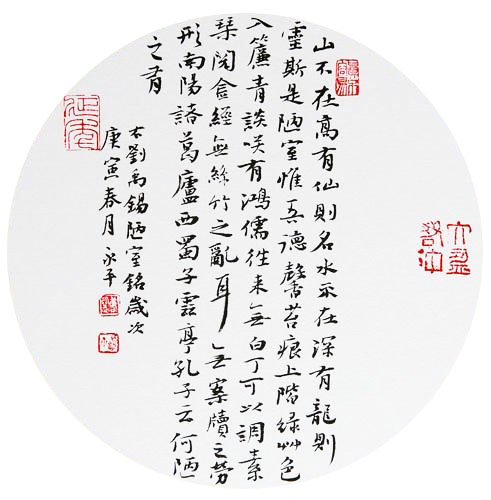 山不在高有仙則名水不在深有龍則
靈斯是陋室惟吾德馨苔痕上階綠艸色
入簾青談咲有鴻儒往來無白丁可以調素
琴閱金經無絲竹之亂耳无案牘之勞
形南陽諸葛廬西蜀子雲亭孔子云何陋
之有
右劉禹錫陋室銘歲次
庚寅春月永平